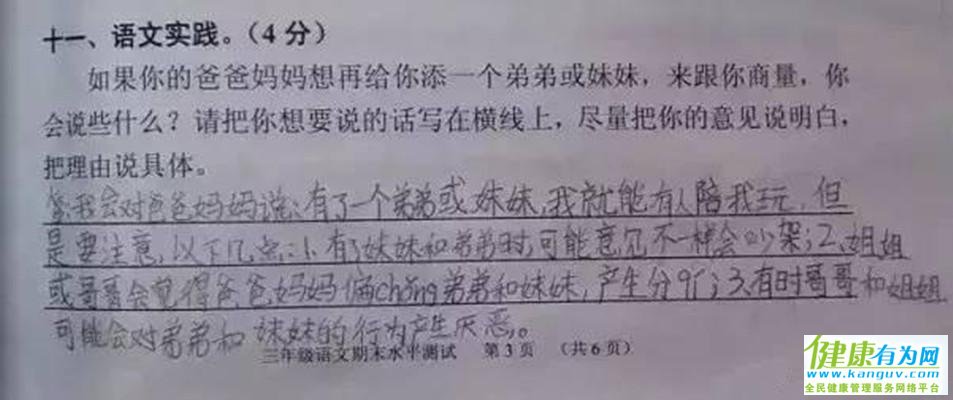 十一、语文实践。（4分）
如果你的爸爸妈妈想再给你添一个弟弟或妹妹，来跟你商量，你
会说些什么？请把你想要说的话写在横线上，尽量把你的意见说明白，
把理由说具体。
答:我会对爸爸妈妈说:有了一个弟弟或妹妹,我就能有人陪我玩,但
是要注意,以下几点:1、有了妹妹和弟弟时,可能意见不一样会吵架;2、姐姐
或哥哥会觉得爸爸妈妈偏chǒng弟弟和妹妹,产生分歧;3、有时哥哥和姐姐
可能会对弟弟和妹妹的行为产生厌恶。
三年级语文期末水平测试 第3页 （共6页）
健康有为网
www.kanguv.com
全民健康管理服务网络平台